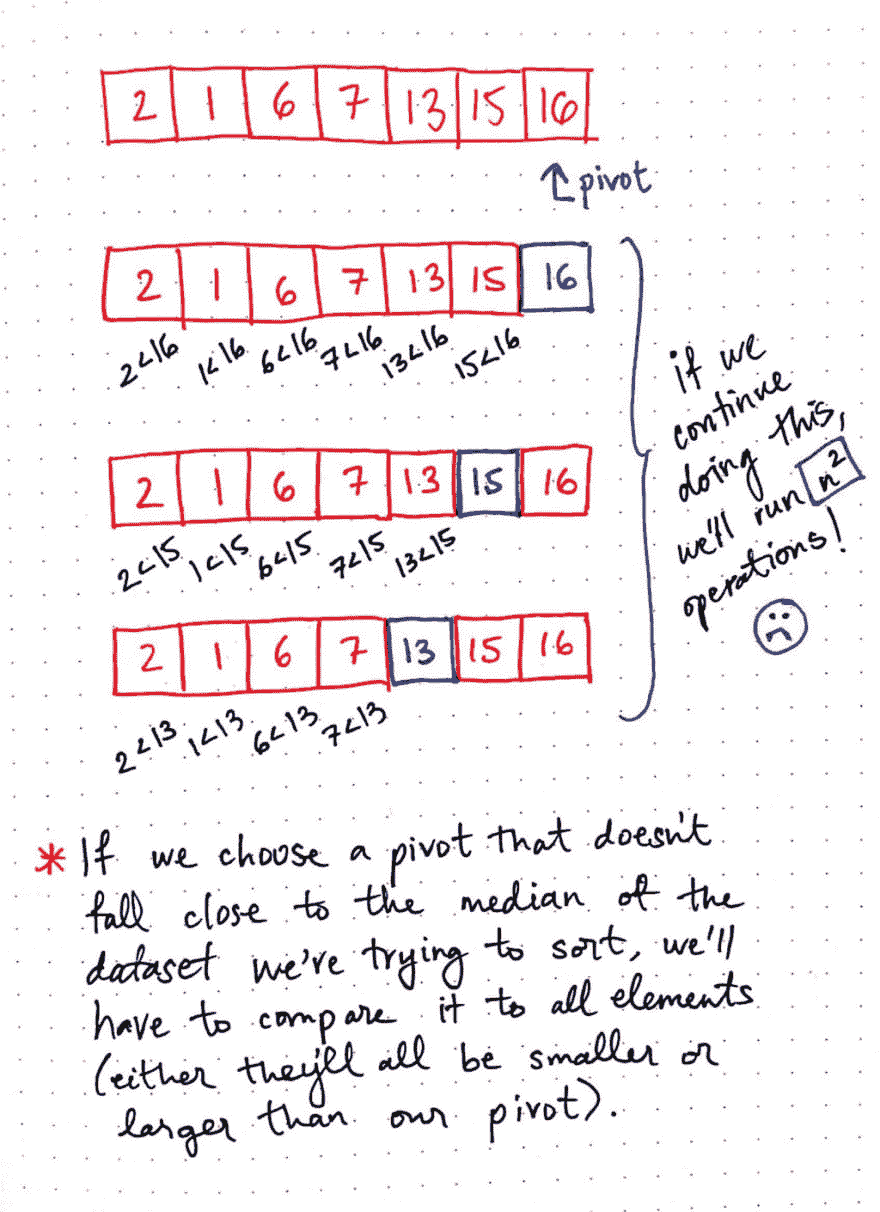 2 1 6 7 13 15 16
↑ pivot
2 1 6 7 13 15 16
2<16 1<16 6<16 7<16 13<16 15<16
2 1 6 7 13 15 16
2<15 1<15 6<15 7<15 13<15
2 1 6 7 13 15 16
2<13 1<13 6<13 7<13
if we
continue
doing this,
we'll run n²
operations!
* If we choose a pivot that doesn't
fall close to the median of the
dataset we're trying to sort, we'll
have to compare it to all elements
(either they'll all be smaller or
larger than our pivot).